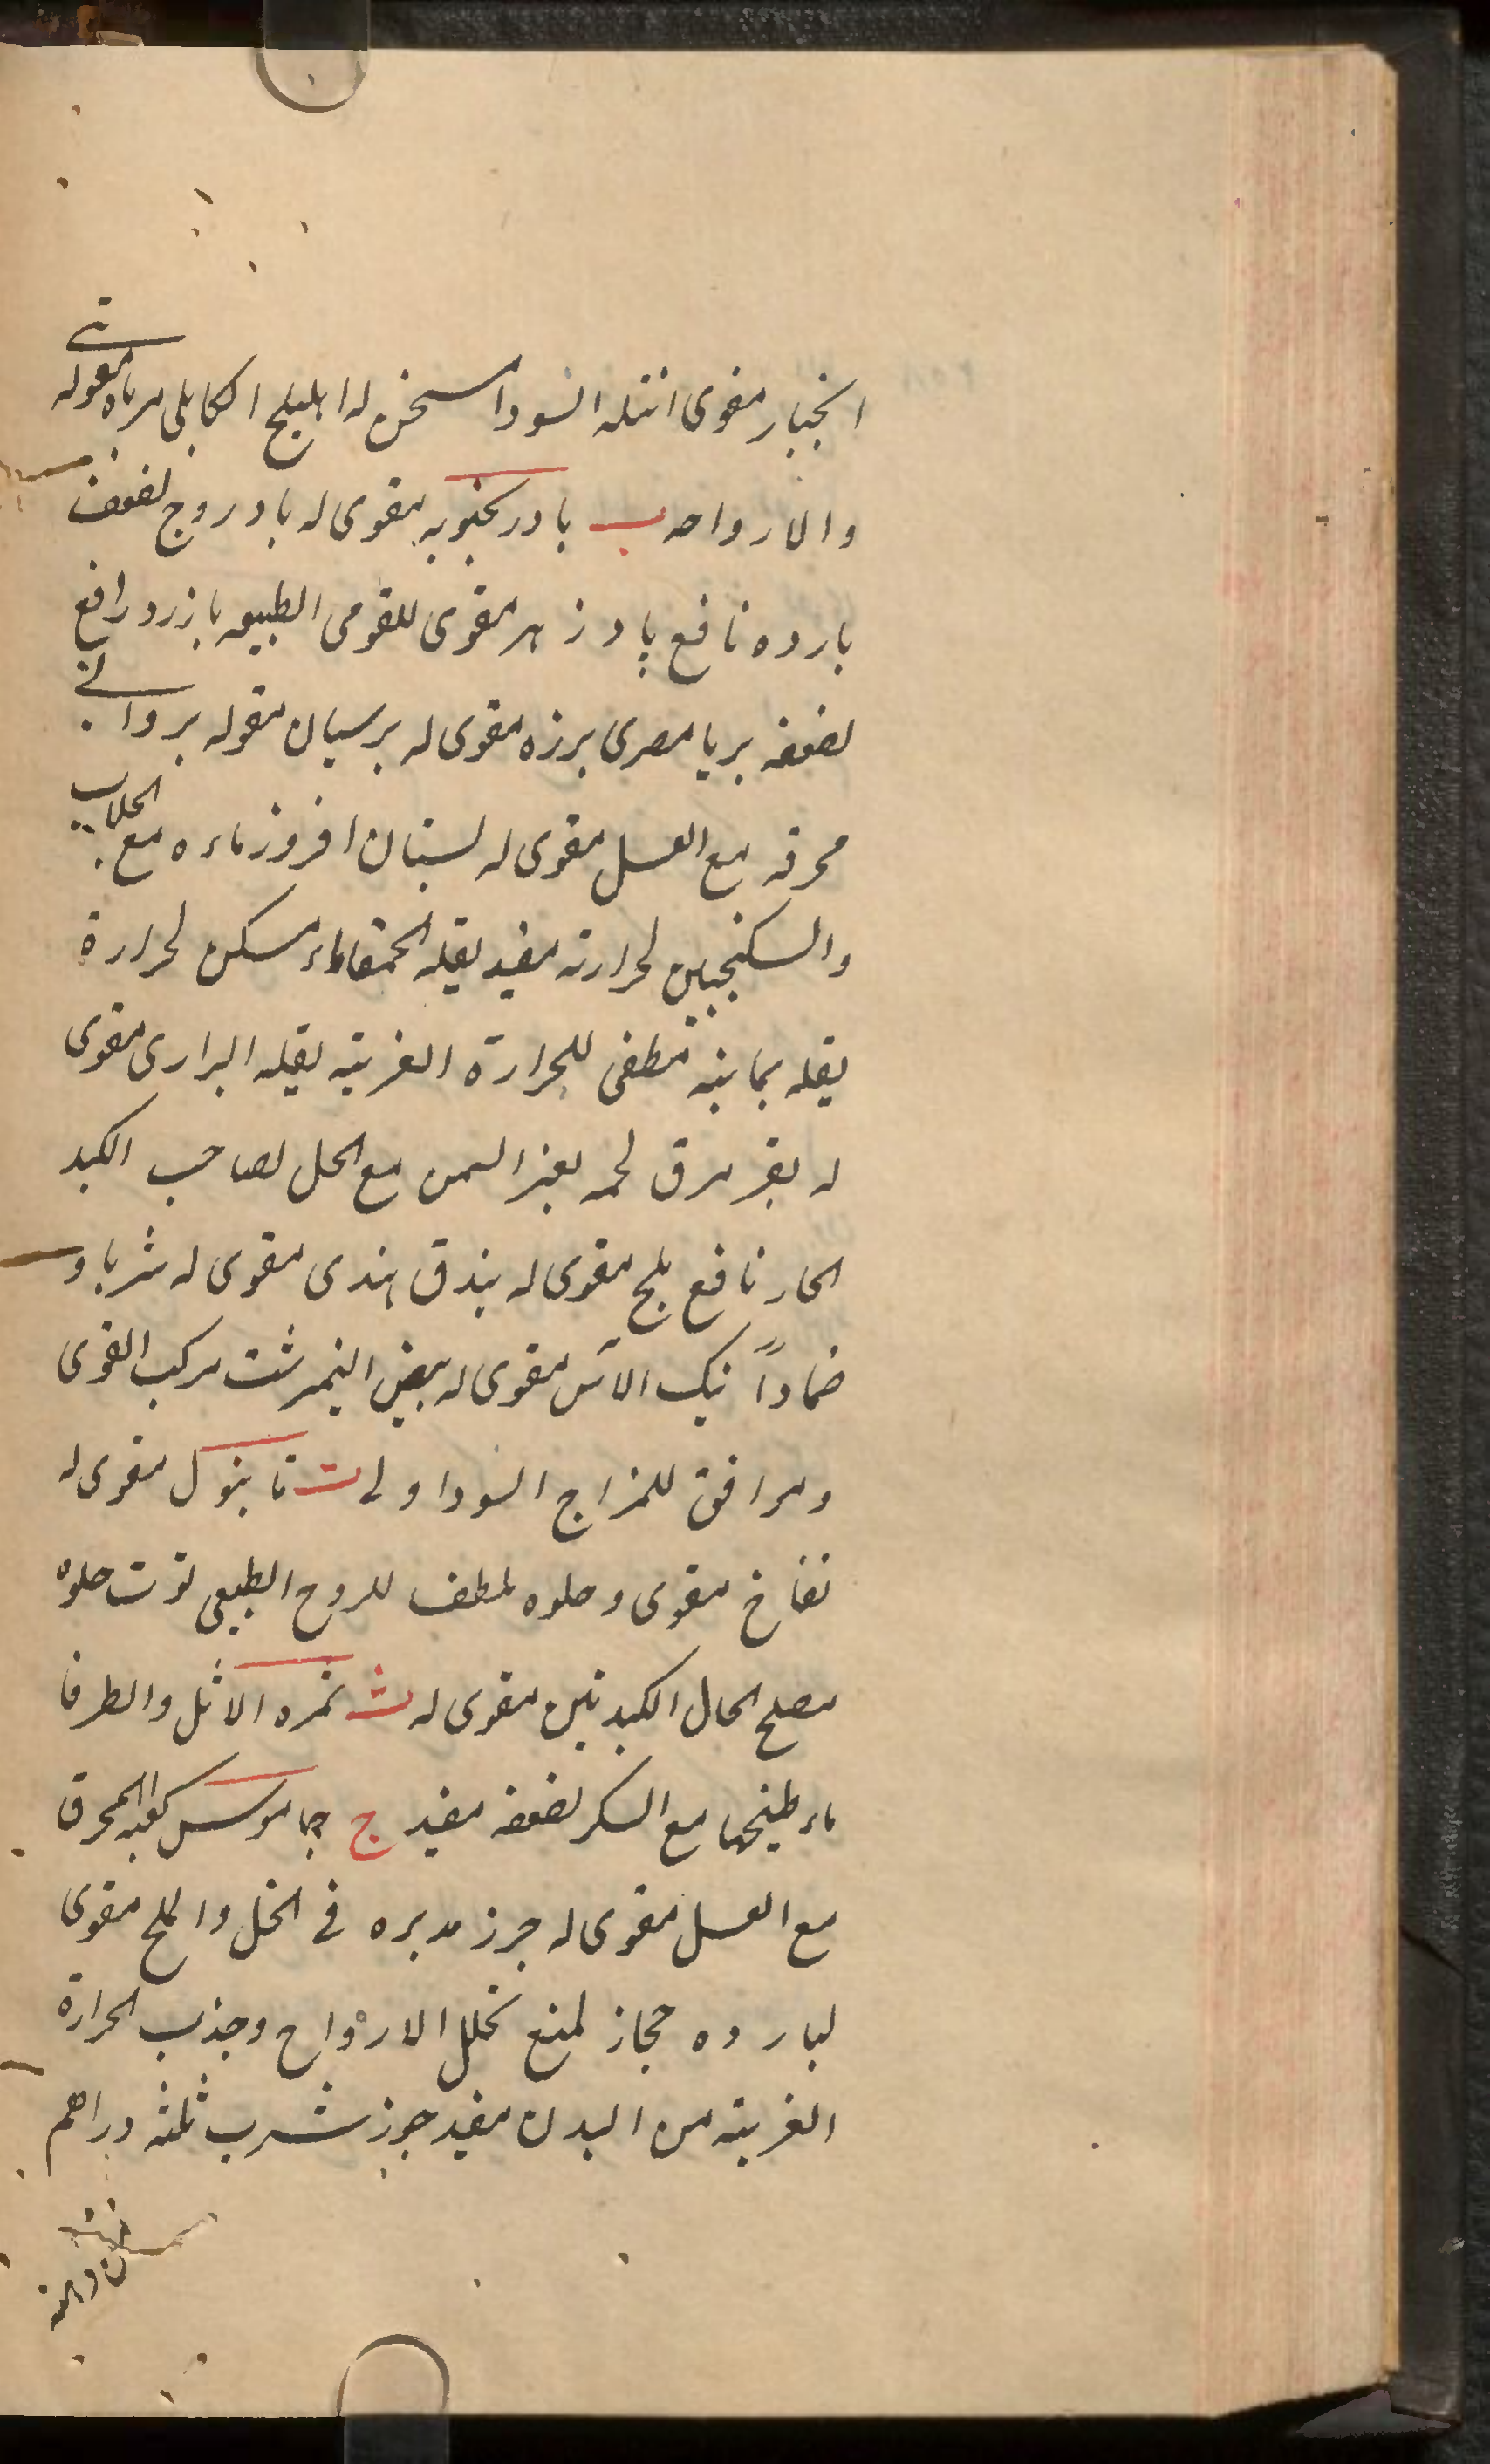 انجبار مقوی انتله السودا مسخن له اهلیلج الکابلی مرباه مقوله
والارواحه ب بادرنجبویه مقوی له بادروج لضعف
بارده نافع پادزهر مقوی للقوی الطبیعه بازرد رافع
لضعفه بریا مصری برزه مقوی له برسیان مقوله بروانی
محرقه مع العسل مقوی له بستان افروز ماءه مع الجلاب
والسکنجبین لحرارته مفید بقله الحمقاء ماء مسکن لحرارة
بقله یمانیه مطفی للحرارة الغریبه بقله البراری مقوی
له بقر مرق لحمه بغیر السمن مع الخل لصاحب الکبد
الحار نافع بلح مقوی له بندق هندی مقوی له شربا و
ضماداً بنک الآس مقوی له بیض النیمرشت مرکب القوی
وموافق للمزاج السوداوی ت تانبول مقوی له
تفاح مقوی وحلوه ملطف للروح الطبیعی توت حلوه
مصلح لحال الکبد تین مقوی له ث ثمره الاثل والطرفا
ماء طبیخها مع السکر لضعفه مفید ج جاموس کعبه المحرق
مع العسل مقوی له جزر مدبره فی الخل والملح مقوی
لبارده حجاز لمنع تحلل الارواح وجذب الحرارة
الغریبه من البدن مفید جوز شرب ثلثه دراهم